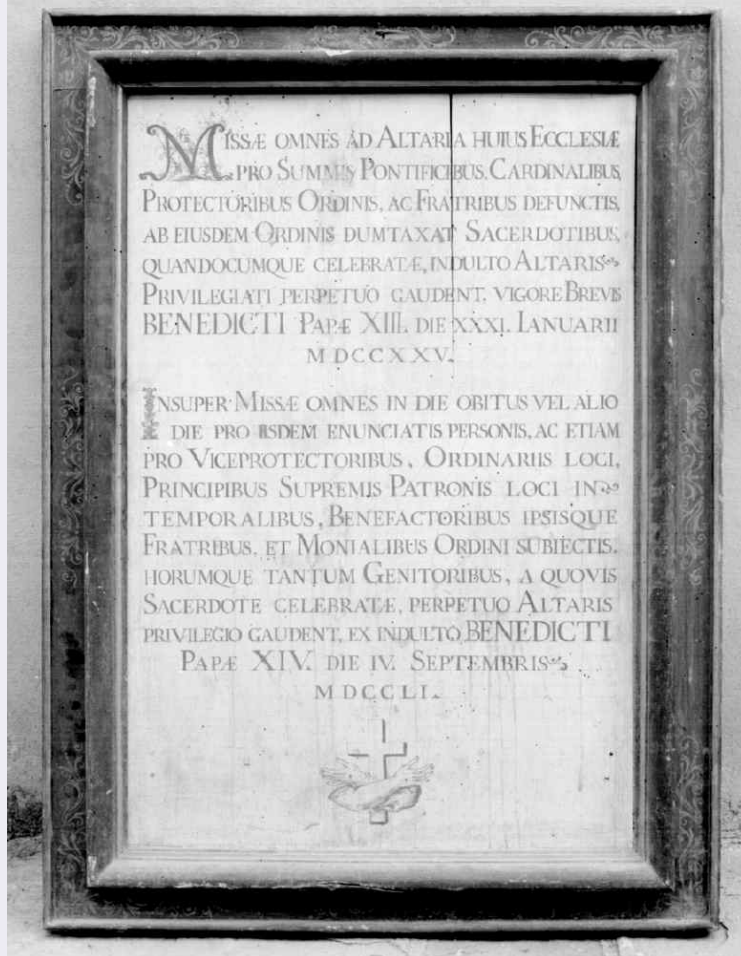 MISSÆ OMNES AD ALTARIA HUIUS ECCLESIÆ
PRO SUMMIS PONTIFICIBUS, CARDINALIBUS,
PROTECTORIBUS ORDINIS, AC FRATRIBUS DEFUNCTIS,
AB EIUSDEM ORDINIS DUMTAXAT SACERDOTIBUS,
QUANDOCUMQUE CELEBRATÆ, INDULTO ALTARIS
PRIVILEGIATI PERPETUO GAUDENT. VIGORE BREVIS
BENEDICTI PAPÆ XIII. DIE XXXI. IANUARII
MDCCXXV.
INSUPER MISSÆ OMNES IN DIE OBITUS VEL ALIO
DIE PRO IISDEM ENUNCIATIS PERSONIS, AC ETIAM
PRO VICEPROTECTORIBUS, ORDINARIIS LOCI,
PRINCIPIBUS SUPREMIS PATRONIS LOCI IN
TEMPORALIBUS, BENEFACTORIBUS IPSISQUE
FRATRIBUS, ET MONIALIBUS ORDINI SUBIECTIS,
HORUMQUE TANTUM GENITORIBUS, A QUOVIS
SACERDOTE CELEBRATÆ, PERPETUO ALTARIS
PRIVILEGIO GAUDENT, EX INDULTO BENEDICTI
PAPÆ XIV. DIE IV. SEPTEMBRIS
MDCCLI.